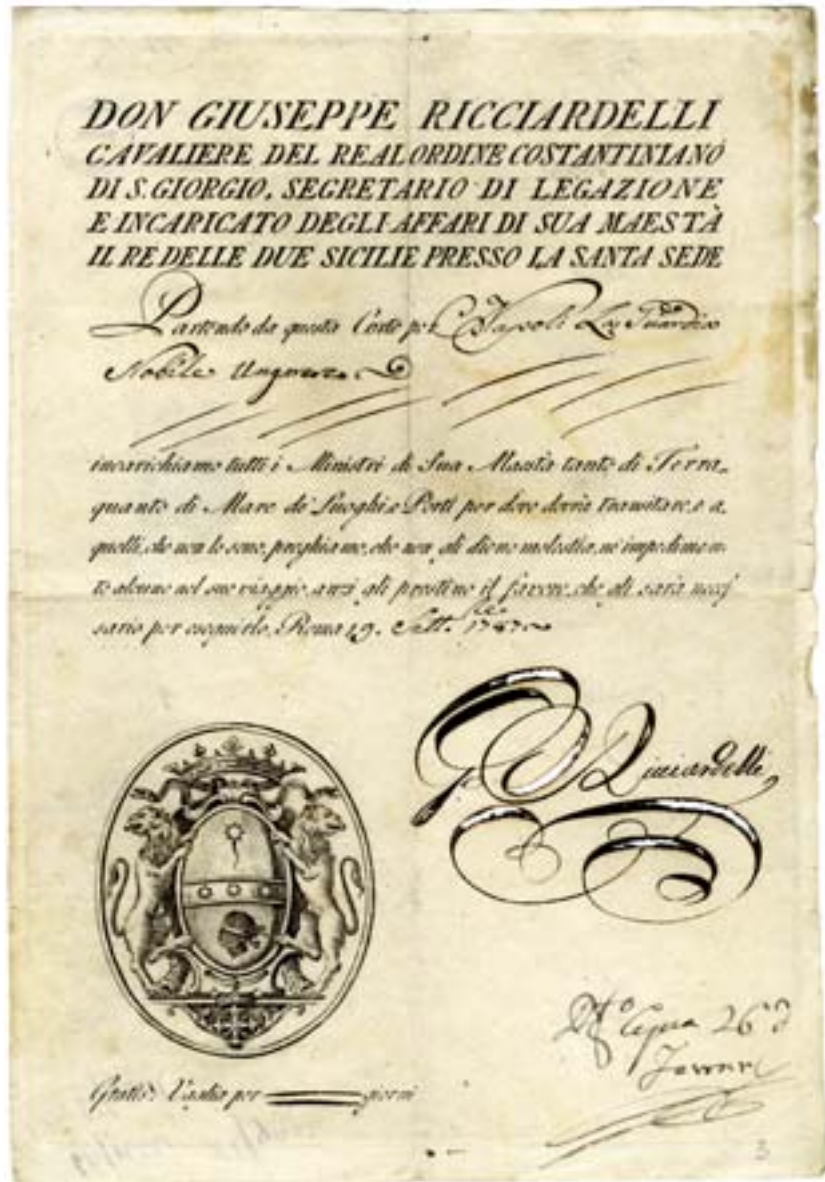 DON GIUSEPPE RICCIARDELLI
CAVALIERE DEL REAL ORDINE COSTANTINIANO
DI S. GIORGIO, SEGRETARIO DI LEGAZIONE
E INCARICATO DEGLI AFFARI DI SUA MAESTÀ
IL RE DELLE DUE SICILIE PRESSO LA SANTA SEDE
Partendo da questa Corte per Napoli
Nobile
incarichiamo tutti i Ministri di Sua Maestà tanto di Terra,
quanto di Mare de' Luoghi, e Porti per dove dovrà transitare, e a
quelli, che non lo sono, preghiamo, che non gli diano molestia, nè impedimen-
to alcuno nel suo viaggio, anzi gli prestino il favore, che gli sarà necess
sario per eseguirlo. Roma 19. Sett.bre 1787
G. Ricciardelli
Gratis: Vaglia per giorni
3